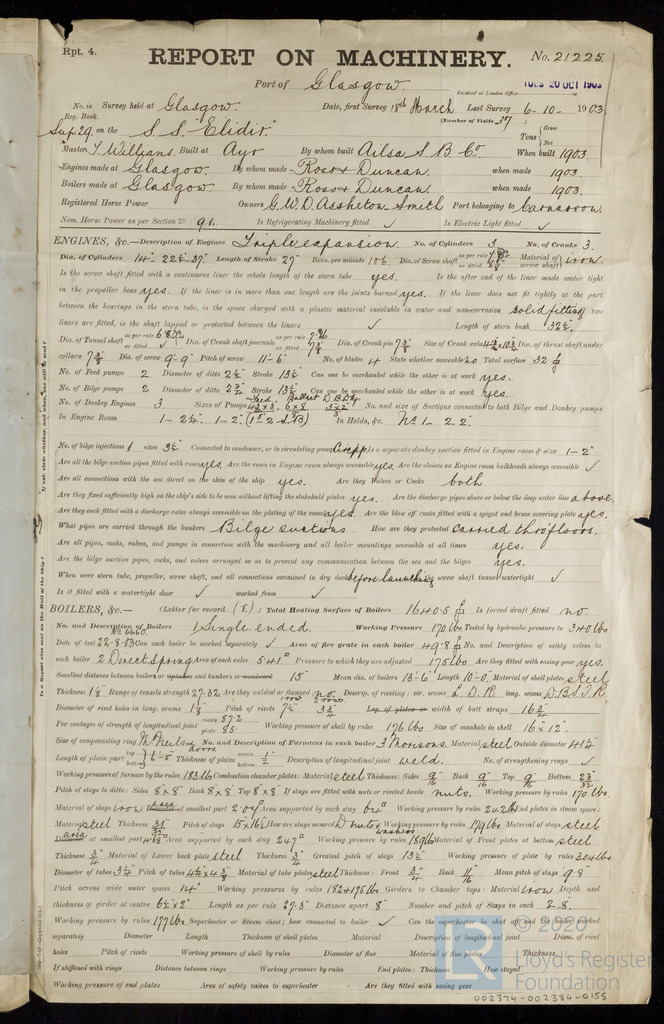 Rpt. 4.
REPORT ON MACHINERY. No. 21225
Port of Glasgow. Received at London Office 20 OCT 1903
No. in Survey held at Glasgow. Date, first Survey 18th March Last Survey 6-10- 1903
Reg. Book. (Number of Visits 37)
Sup 29 on the S.S. "Elidir" Tons Gross Net
Master T. Williams. Built at Ayr By whom built Ailsa S B Co. When built 1903
Engines made at Glasgow. By whom made Ross & Duncan. when made 1903.
Boilers made at Glasgow By whom made Ross & Duncan. when made 1903.
Registered Horse Power Owners G. W. D. Assheton-Smith Port belonging to Carnarvon.
Nom. Horse Power as per Section 28 91. Is Refrigerating Machinery fitted ✓ Is Electric Light fitted ✓
ENGINES, &c.—Description of Engines Triple expansion. No. of Cylinders 3 No. of Cranks 3.
Dia. of Cylinders 14" 22½" 37" Length of Stroke 27" Revs. per minute 106 Dia. of Screw shaft as per rule as fitted Material of screw shaft iron
Is the screw shaft fitted with a continuous liner the whole length of the stern tube yes. Is the after end of the liner made water tight
in the propeller boss yes. If the liner is in more than one length are the joints burned yes. If the liner does not fit tightly at the part
between the bearings in the stern tube, is the space charged with a plastic material insoluble in water and non-corrosive solid fitting If two
liners are fitted, is the shaft lapped or protected between the liners ✓ Length of stern bush 32½"
Dia. of Tunnel shaft as per rule as fitted Dia. of Crank shaft journals as per rule as fitted Dia. of Crank pin 7⅜" Size of Crank webs Dia. of thrust shaft under
collars 7⅜" Dia. of screw 9'-9" Pitch of screw 11'-6" No. of blades 4 State whether moveable no Total surface 32
No. of Feed pumps 2 Diameter of ditto 2½" Stroke 13½" Can one be overhauled while the other is at work yes.
No. of Bilge pumps 2 Diameter of ditto 2¾" Stroke 13½" Can one be overhauled while the other is at work yes.
No. of Donkey Engines 3 Sizes of Pumps Feed Ballast No. and size of Suctions connected to both Bilge and Donkey pumps
In Engine Room In Holds, &c.
No. of bilge injections 1 sizes 3½" Connected to condenser, or to circulating pump Is a separate donkey suction fitted in Engine room & size 1-2"
Are all the bilge suction pipes fitted with roses yes. Are the roses in Engine room always accessible yes. Are the sluices on Engine room bulkheads always accessible ✓
Are all connections with the sea direct on the skin of the ship yes. Are they Valves or Cocks both
Are they fixed sufficiently high on the ship's side to be seen without lifting the stokehold plates yes. Are the discharge pipes above or below the deep water line above
Are they each fitted with a discharge valve always accessible on the plating of the vessel yes. Are the blow off cocks fitted with a spigot and brass covering plate yes.
What pipes are carried through the bunkers Bilge suctions How are they protected carried thro' floors.
Are all pipes, cocks, valves, and pumps in connection with the machinery and all boiler mountings accessible at all times yes.
Are the bilge suction pipes, cocks, and valves arranged so as to prevent any communication between the sea and the bilges yes.
When were stern tube, propeller, screw shaft, and all connections examined in dry dock before launching Is the screw shaft tunnel watertight ✓
Is it fitted with a watertight door ✓ worked from ✓
BOILERS, &c.— (Letter for record (T.) Total Heating Surface of Boilers 1640.5 Is forced draft fitted no.
No. and Description of Boilers 1 Single ended. Working Pressure 170 lbs Tested by hydraulic pressure to 340 lbs
No 6660
Date of test 22-8-03 Can each boiler be worked separately ✓ Area of fire grate in each boiler 49.8 No. and Description of safety valves to
each boiler 2 Direct Spring Area of each valve 5.41" Pressure to which they are adjusted 175 lbs Are they fitted with easing gear yes.
Smallest distance between boilers or uptakes and bunkers or woodwork 15" Mean dia. of boilers 13'-6" Length 10'-0" Material of shell plates steel
Thickness Range of tensile strength 27-32 Are they welded or flanged no. Descrip. of riveting: cir. seams L.D.R. long. seams
Diameter of rivet holes in long. seams 1⅛" Pitch of rivets Lap of plates or width of butt straps 16¾"
Per centages of strength of longitudinal joint rivets 87.2 plate 85 Working pressure of shell by rules 176 lbs Size of manhole in shell 16" x 12"
Size of compensating ring McNeil's doors No. and Description of Furnaces in each boiler 3 Morisons. Material steel Outside diameter 41¼"
Length of plain part top bottom Thickness of plates crown bottom Description of longitudinal joint weld. No. of strengthening rings ✓
Working pressure of furnace by the rules 183 lbs Combustion chamber plates: Material steel Thickness: Sides 9/16" Back 9/16" Top 9/16" Bottom 23/32"
Pitch of stays to ditto: Sides 8" x 8" Back 8" x 8" Top 8" x 8" If stays are fitted with nuts or riveted heads nuts. Working pressure by rules 170 lbs
Material of stays iron area at smallest part 2.07" Area supported by each stay 64" Working pressure by rules 242 lbs End plates in steam space:
Material steel Thickness Pitch of stays How are stays secured D nuts & washers Working pressure by rules 179 lbs Material of stays steel
area at smallest part Area supported by each stay 247" Working pressure by rules 189 lbs Material of Front plates at bottom steel
Thickness ¾" Material of Lower back plate steel Thickness ¾" Greatest pitch of stays 13½" Working pressure of plate by rules 304 lbs
Diameter of tubes 3¼" Pitch of tubes 4½" x 4⅜" Material of tube plates steel Thickness: Front ¾" Back 11/16" Mean pitch of stays 9.8"
Pitch across wide water spaces 14" Working pressures by rules 182 & 175 lbs Girders to Chamber tops: Material iron Depth and
thickness of girder at centre 6½" x 2" Length as per rule 27.3" Distance apart 8" Number and pitch of Stays in each 2-8"
Working pressure by rules 177 lbs Superheater or Steam chest; how connected to boiler ✓ Can the superheater be shut off and the boiler worked
separately Diameter Length Thickness of shell plates Material Description of longitudinal joint Diam. of rivet
holes Pitch of rivets Working pressure of shell by rules Diameter of flue Material of flue plates Thickness
If stiffened with rings Distance between rings Working pressure by rules End plates: Thickness How stayed
Working pressure of end plates Area of safety valves to superheater Are they fitted with easing gear
© 2020
Lloyd's Register
Foundation
002374-002384-0155